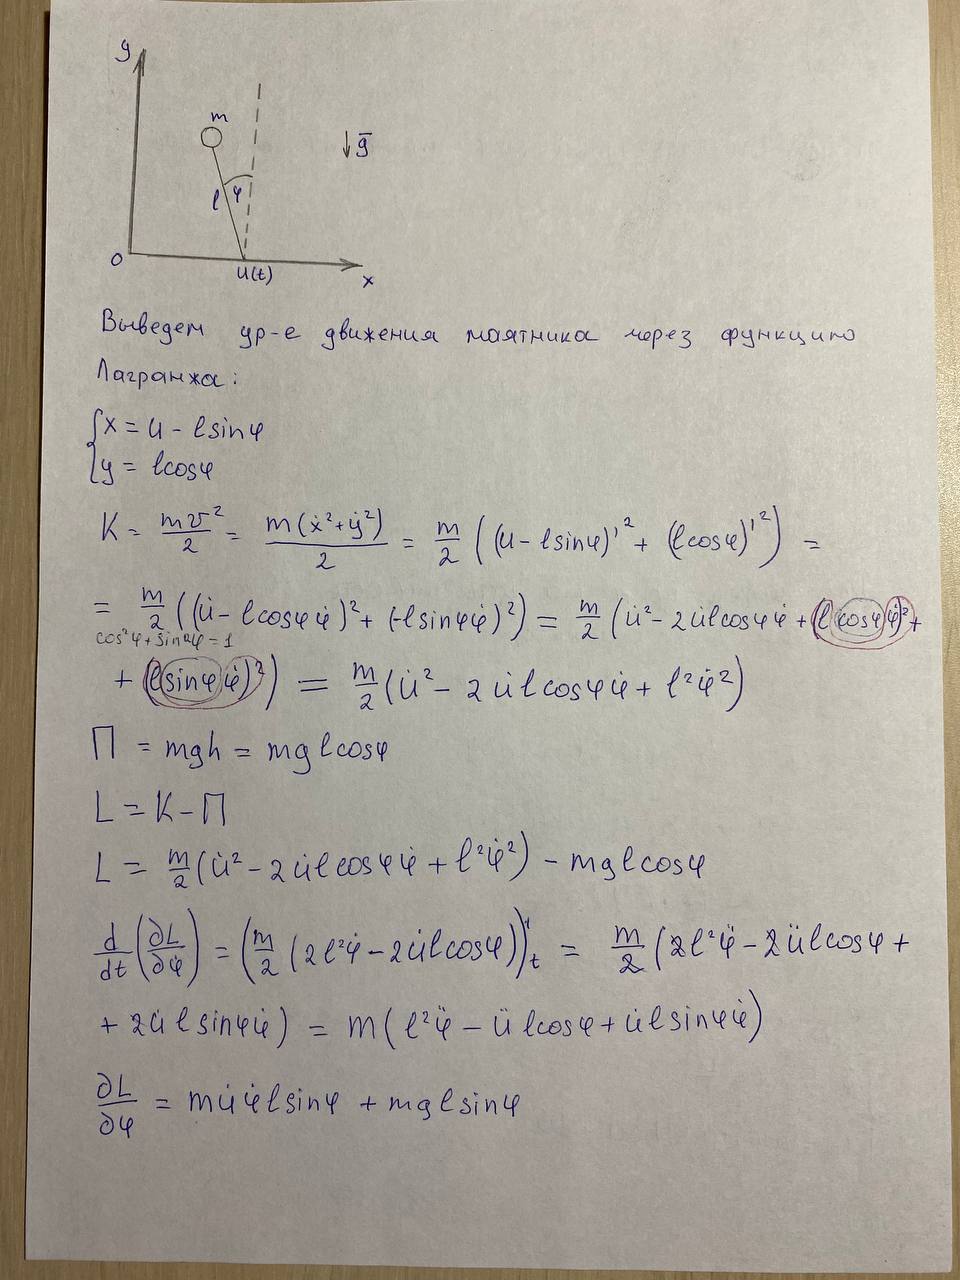 y
m
↓ g̅
l φ
O
u(t)
x
Выведем ур-е движения маятника через функцию
Лагранжа:
{ x = u - l sinφ
y = l cosφ
K = mv²/2 = m(ẋ²+ẏ²)/2 = m/2 ((u - l sinφ)'² + (l cosφ)'²) =
= m/2 ((u̇ - l cosφ φ̇)² + (-l sinφ φ̇)²) = m/2 (u̇² - 2u̇l cosφ φ̇ + (l cosφ φ̇)² +
cos²φ + sin²φ = 1
+ (l sinφ φ̇)²) = m/2 (u̇² - 2u̇l cosφ φ̇ + l²φ̇²)
П = mgh = mgl cosφ
L = K - П
L = m/2 (u̇² - 2u̇l cosφ φ̇ + l²φ̇²) - mgl cosφ
d/dt (∂L/∂φ̇) = (m/2 (2l²φ̇ - 2u̇l cosφ))'t = m/2 (2l²φ̈ - 2ül cosφ +
+ 2u̇l sinφ φ̇) = m(l²φ̈ - ül cosφ + u̇l sinφ φ̇)
∂L/∂φ = mu̇φ̇l sinφ + mgl sinφ